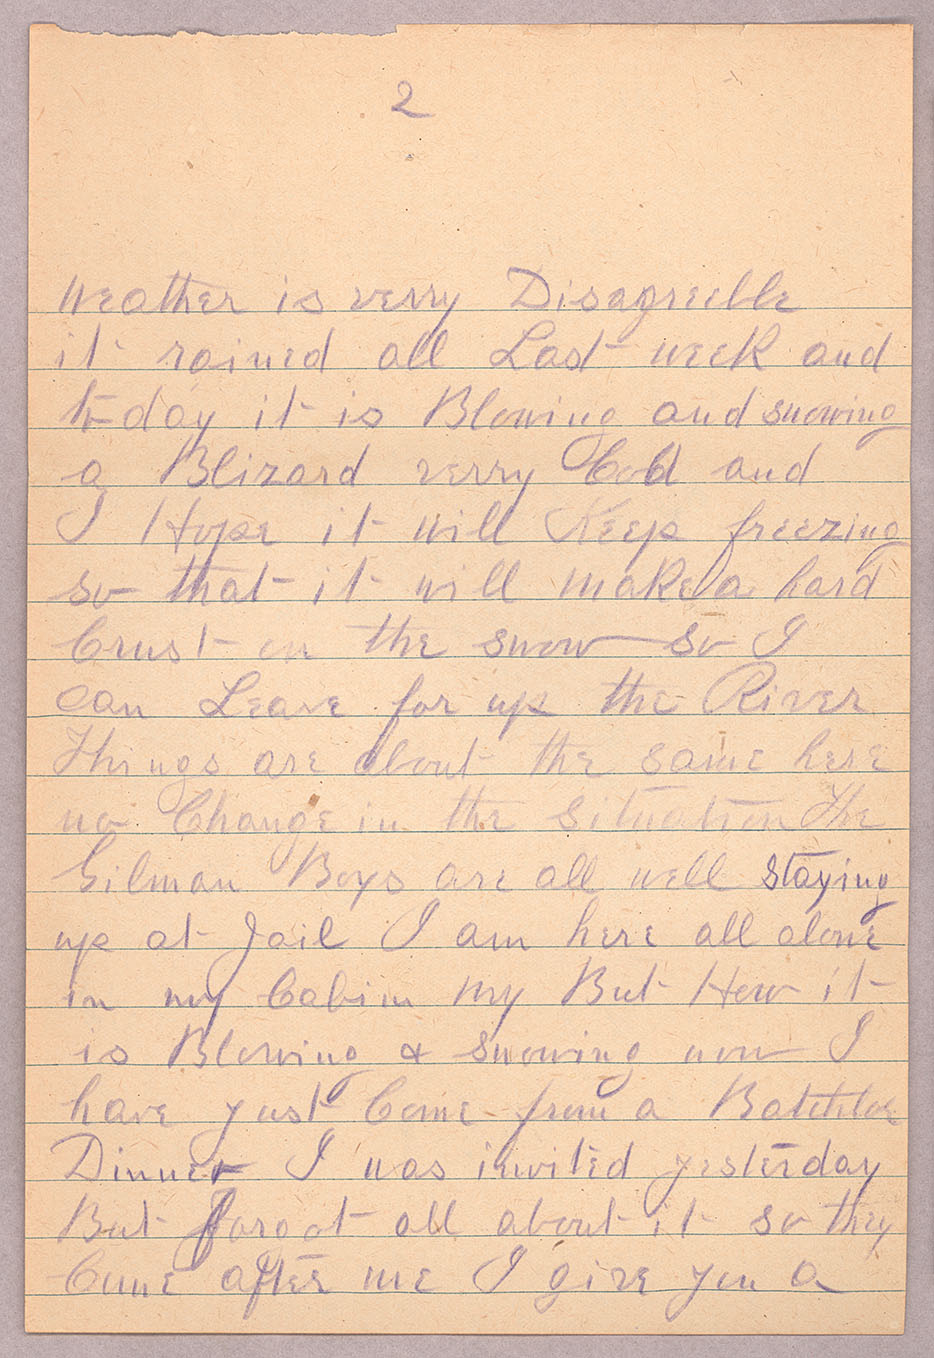 2
Weather is verry Disagreeble
it rained all Last week and
to-day it is Blowing and snowing
a Blizard verry Cold and
I Hope it will Keep freezing
so that it will make a hard
Crust on the snow so I
can Leave for up the River
Things are about the same here
no Change in the situation The
Gilman Boys are all well staying
up at Jail I am here all alone
in my Cabin My But How it
is Blowing & snowing now I
have just Come from a Batchlor
Dinner I was invited yesterday
But forgot all about it so they
Came after me I give you a